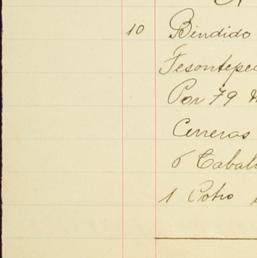 10 Bendido
Tesontepec
Por 79
Carreras
6 Caball
1 Potro